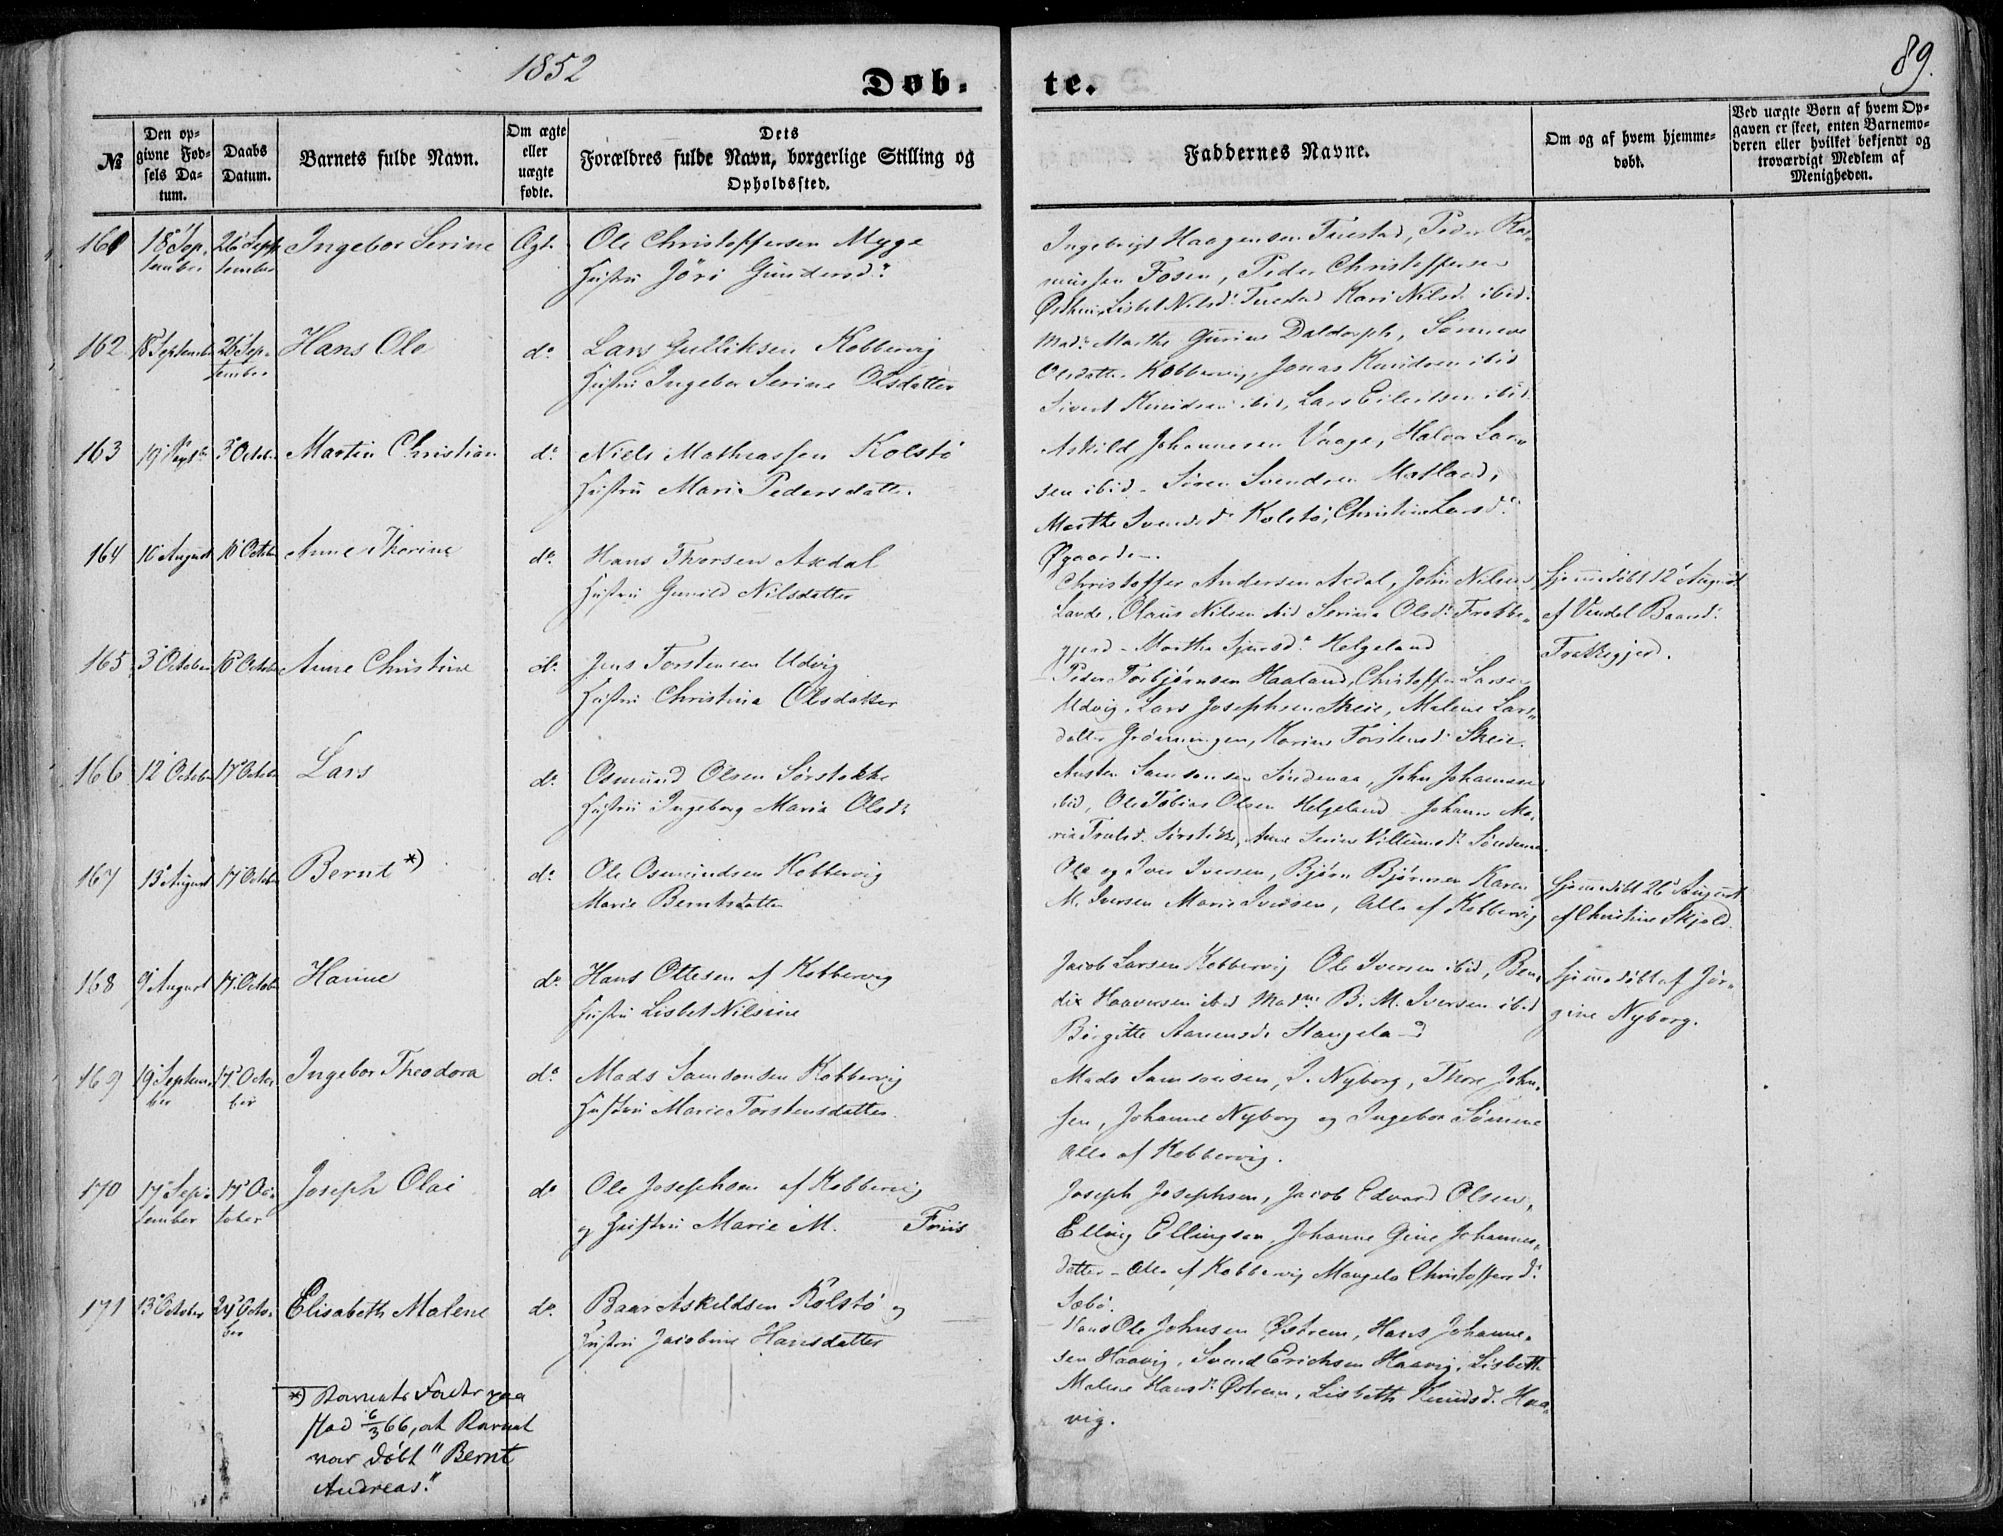 1852
89.
Døb-
te.
№
Den opgivne Fødsels Datum.
Daabs Datum.
Barnets fulde Navn.
Om ægte eller uægte fødte.
Dets Forældres fulde Navn, borgerlige Stilling og Opholdssted.
Faddernes Navne.
Om og af hvem hjemmedøbt.
Ved uægte Børn af hvem Opgaven er skeet, enten Barnemoderen eller hvilket bekjendt og troværdigt Medlem af Menigheden.
161 18' Sep- 26' Sept Ingebor Serine Ægt. Ole Christoffersen Myge
tember tember Hustru Jöri Gundersd:
Ingebrigt Haagensen Tuestad, Peder Ras-
mussen Fosen, Peder Christoffersen
Lisbet Nilsd: Tuestad Kari Nilsd. ibid.
162 18' September 26' Sep- Hans Ole d: Lars Gulliksen Kobbervig
tember Hustru Ingebor Serine Olsdatter
Mad: Marthe Gurine Daldorph, Sønneve
Olsdatter Kobbervig, Jonas Knudsen ibid
Sivert Knudsen ibid, Lars Eilertsen ibid.
163 19' Septb: 3' Octob: Martin Christian d: Niels Mathiassen Kolstö
Hustru Marie Pedersdatter.
Askild Johannesen Vaage, Halvor Lar-
sen ibid - Sören Svendsen Matland,
Marthe Svendsd: Kolstö, Christine Larsd:
Øgaarden.
164 10' August 10' Octob: Anne Thorine d: Hans Thorsen Axdal
Hustru Gunild Nilsdatter
Christoffer Andersen Axdal, John Nilsen
Lande, Olaus Nilsen ibid Serina Olsd: Frakke-
gjerd - Martha Sjursd: Helgeland
Hjemmedöbt 12' August
af Vendel Baarsd:
Frakkegjerd.
165 3' October 10' October Anne Christine d: Jens Torstensen Udvig
Hustru Christina Olsdatter
Peder Torbjörnsen Haaland, Christoffer Larsen
Udvig, Lars Josephsen Skeie, Malene Lars-
datter Grönningen, Karine Torstensd: Skeie.
166 12' October 17' October Lars d: Osmund Olsen Sörstokke
Hustru Ingeborg Maria Olsd:
Austen Samsonsen Söndenaa, John Johannesen
ibid, Ole Tobias Olsen Helgeland - Johanne Ma-
Sörstokke, Anne Serine Villumsd: Söndenaa.
167 13' August 17' October Bernt *) d: Ole Osmundsen Kobbervig
Marie Berntsdatter
Ole og Iver Iversen, Björn Björnsen Karen
M. Iversen Marie Iversen, Alle af Kobbervig
Hjemmedöbt 26' August
af Christine Skjold.
168 9' August 17' October Hanne d: Hans Ottesen af Kobbervig
Hustru Lisbet Nilsine
Jacob Larsen Kobbervig Ole Iversen ibid, Ben-
dix Haaversen ibid Madm: B. M. Iversen ibid
Birgitte Aanensd: Stangeland
Hjemmedöbt af Jör-
gine Nyborg.
169 19' Septem- 17' Octo- Ingebor Theodora d: Mads Samsonsen Kobbervig
ber ber Hustru Marie Torstensdatter.
Mads Samsonsen, J. Nyborg, Thore John-
sen, Johanne Nyborg og Ingebor Sömme
Alle af Kobbervig.
170 17' Sep- 17' Oc- Joseph Olai d: Ole Josephsen af Kobbervig
tember tober og Hustru Marie M. Friis
Joseph Josephsen, Jacob Edvard Olsen,
Elling Ellingsen, Johanne Gine Johannes-
datter - Alle af Kobbervig Mangela Christoffersd:
Sæbö.
171 13' October 24' Octo- Elisabeth Malene d: Baar Askildsen Kolstö og
ber Hustru Jacobine Hansdatter
Hans Ole Johnsen Østrem, Hans Johanne-
sen Haavig, Svend Erichsen Haavig, Lisbeth
Malene Hansd: Østrem, Lisbeth Knudsd. Haa-
vig.
*) Barnets Fader paa
stod 6/3 66, at Barnet
var döbt "Bernt
Andreas."